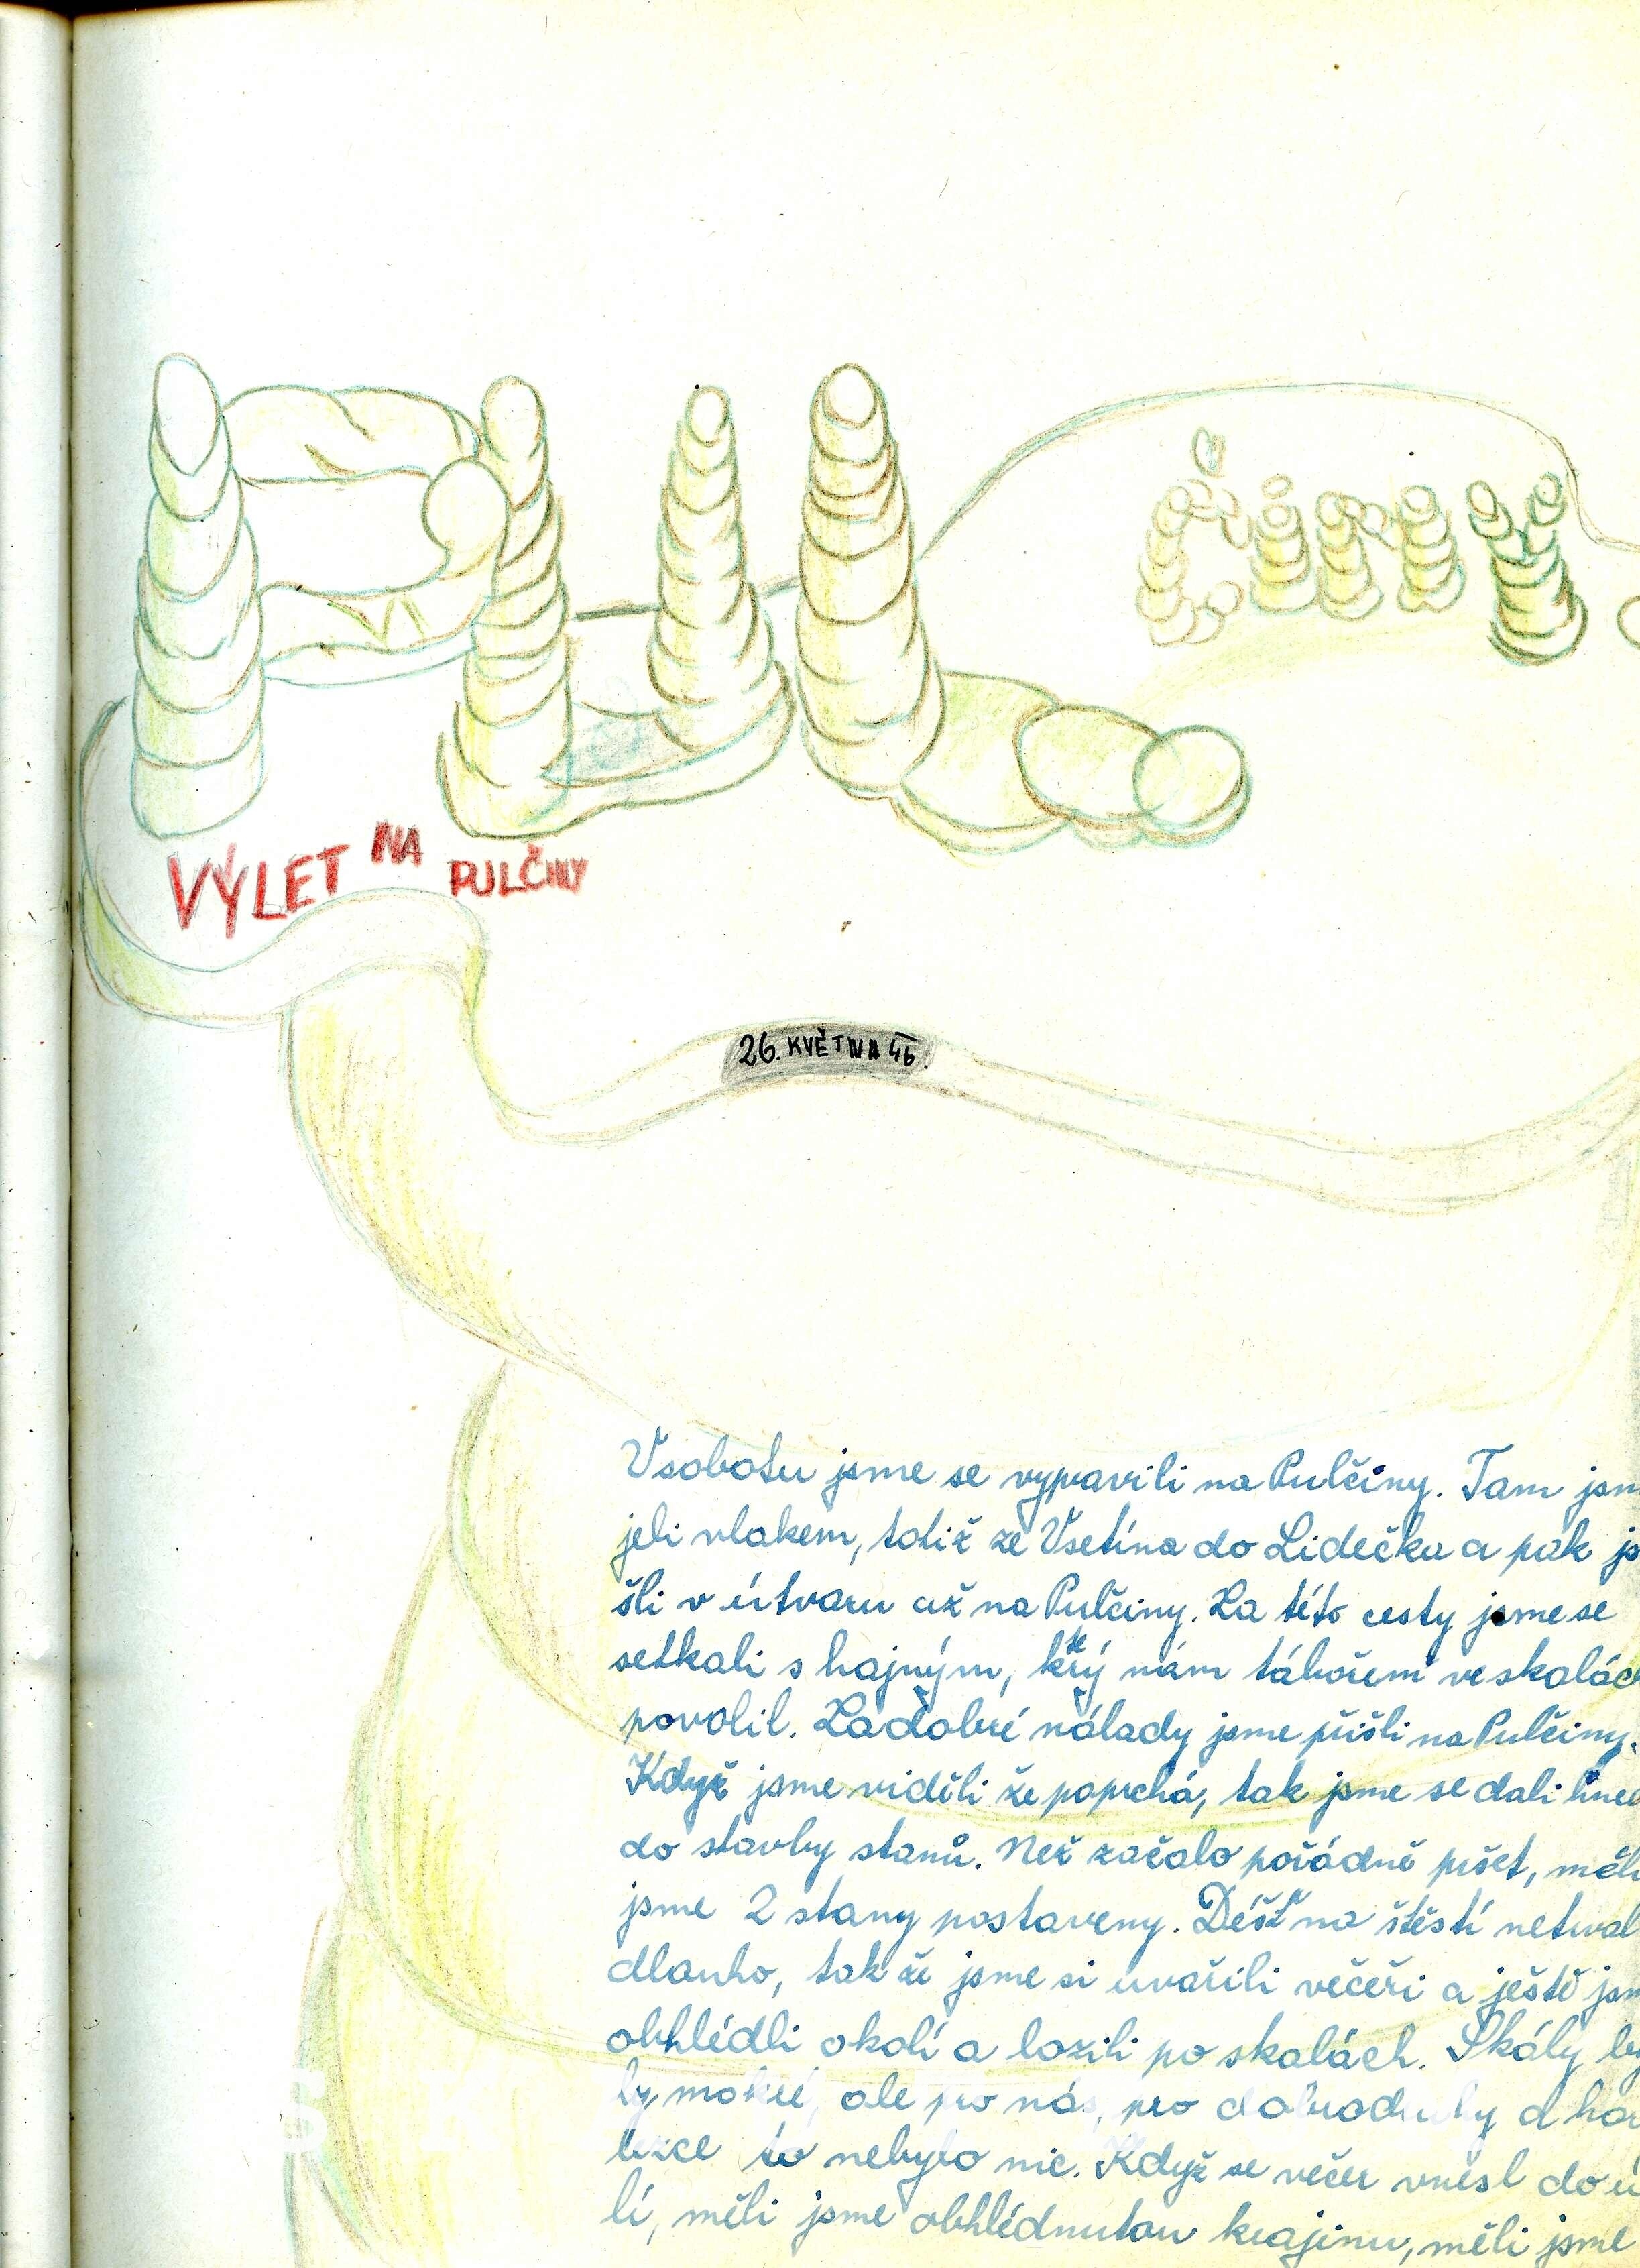 VÝLET NA PULČINY
26. KVĚTNA 46.
V sobotu jsme se vypravili na Pulčiny. Tam jsm
jeli vlakem, totiž ze Vsetína do Lidečka a pak js
šli v útvaru až na Pulčiny. Za této cesty jsme se
setkali s hajným, který nám táboření ve skalác
povolil. Za dobré nálady jsme přišli na Pulčiny.
Když jsme viděli že poprchá, tak jsme se dali hned
do stavby stanů. Než začalo pořádně pršet, měli
jsme 2 stany postaveny. Déšť na štěstí netrval
dlouho, tak že jsme si uvařili večeři a ještě jsm
obhlédli okolí a lozili po skalách. Skály by
ly mokré, ale pro nás, pro dobrodruhy a hor
lezce to nebylo nic. Když se večer vnesl do ú
lí, měli jsme obhlédnutou krajinu, měli jsme